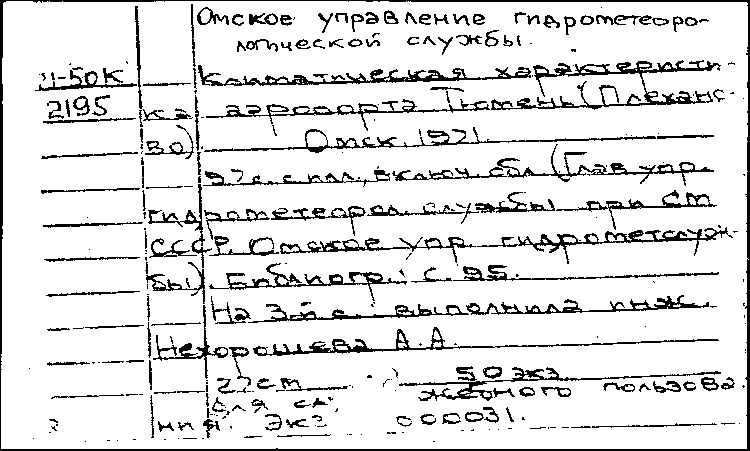 Омское управление гидрометеоро-
логической службы.
21-50К Климатическая характеристи-
2195 ка аэропорта Тюмень (Плехано-
во) Омск, 1971.
97с. с илл., включ. обл. (Глав. упр.
гидрометеорол. службы при СМ
СССР. Омское упр. гидрометслуж-
бы). Библиогр.: с. 95.
На 3-й с.: выполнила инж.
Нехорошева А.А.
27см 50 экз
Для служебного пользова
ния. Экз 000031.